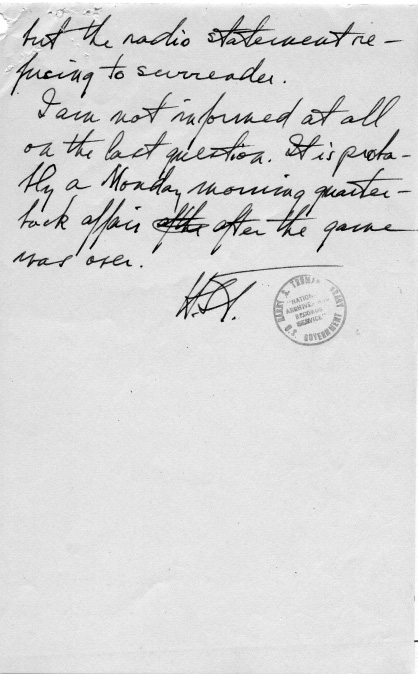 but the radio statement re-
fusing to surrender.
I am not informed at all
on the last question. It is proba-
bly a Monday morning quarter-
back affair after the game
was over.
H.S.T.
HARRY S. TRUMAN LIBRARY
"NATIONAL
ARCHIVES AND
RECORDS
SERVICE"
U.S. GOVERNMENT